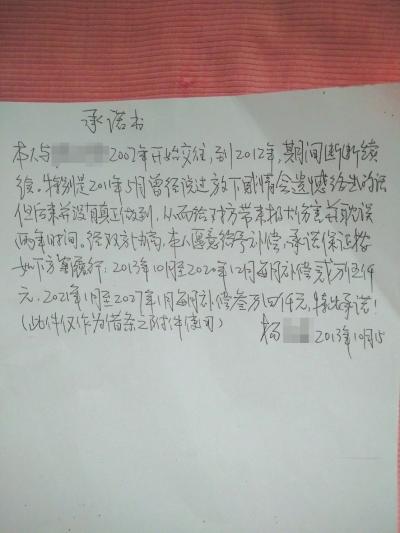 承诺书
本人与 2007年开始交往，到2012年，期间断断续
续。特别是2011年5月曾经说过放下感情会遗憾终生的话
但后来并没有真正做到，从而给对方带来极大伤害并耽误
两年时间。经双方协商，本人愿意给予补偿，承诺保证按
如下方案履行：2013年10月至2020年12月每月补偿贰万伍仟
元，2021年1月至2027年1月每月补偿叁万四仟元，特此承诺！
（此件仅作为借条之附件使用） 杨 2013年10月15